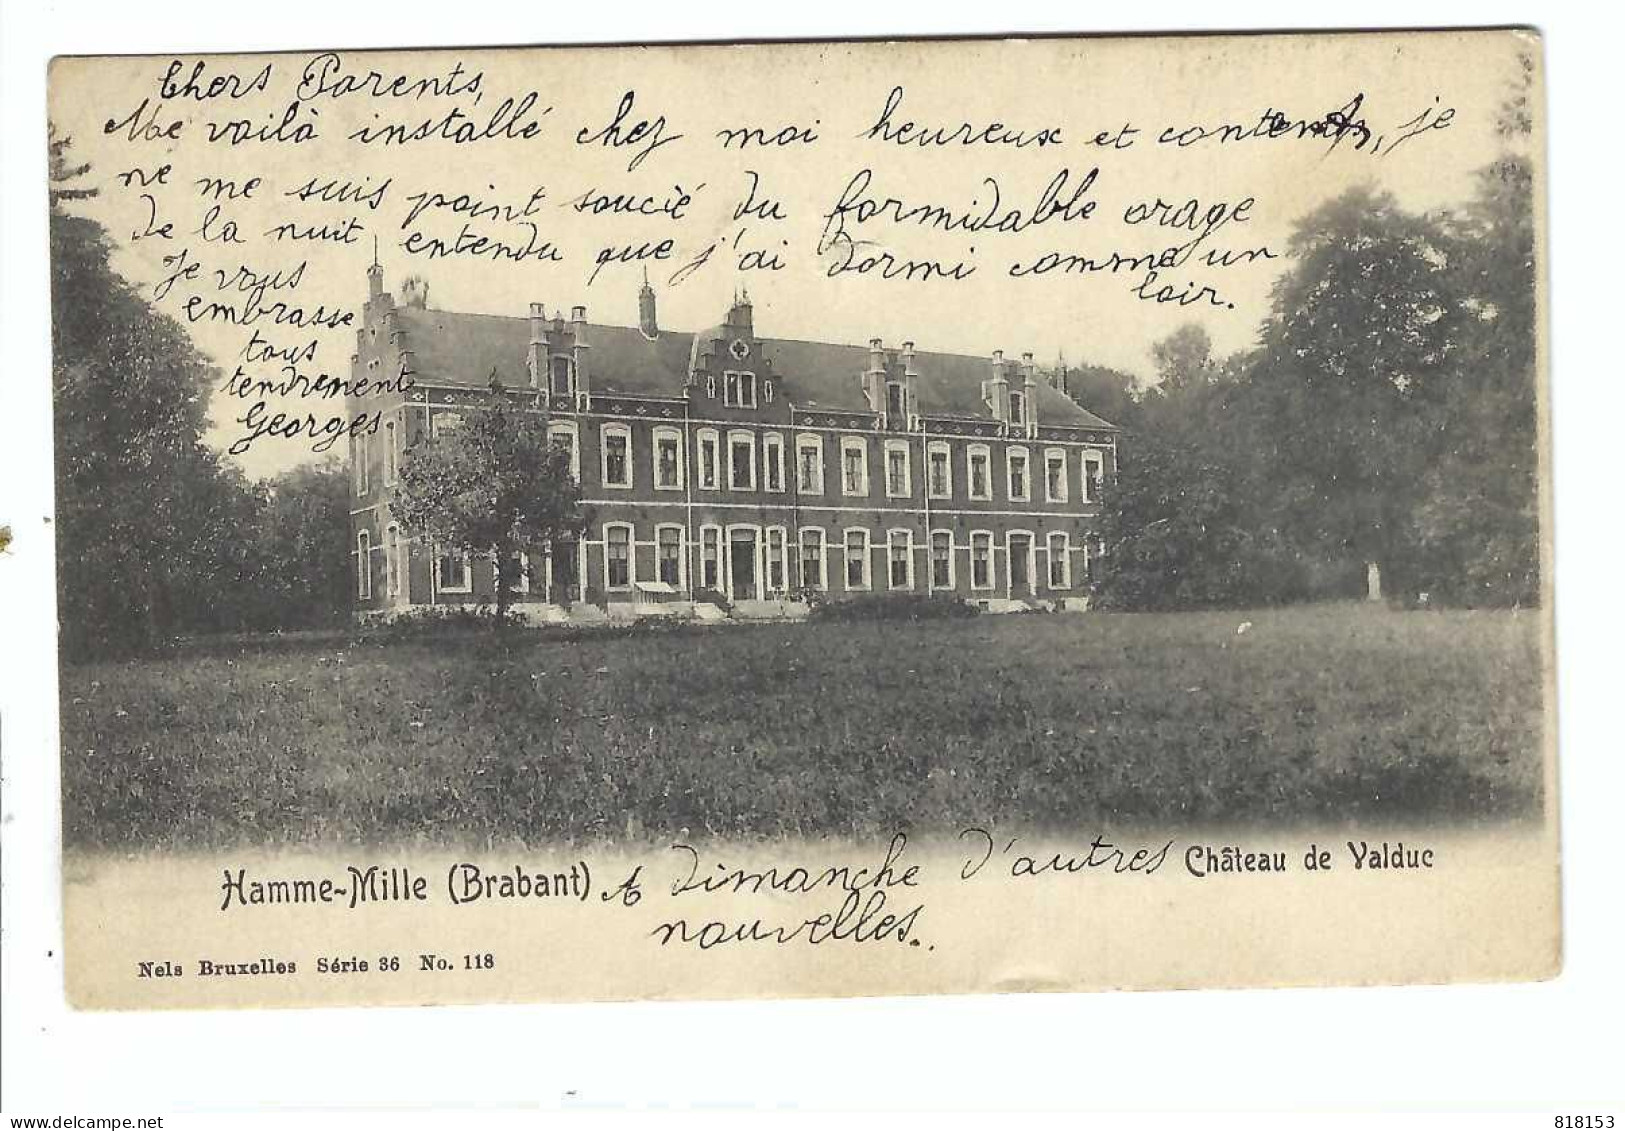 Chers Parents,
Me voilà installé chez moi heureux et content, je
ne me suis point soucié du formidable orage
de la nuit entendu que j'ai dormi comme un
loir.
Je vous
embrasse
tous
tendrement
Georges
Hamme-Mille (Brabant) A dimanche d'autres Château de Valduc
nouvelles..
Nels Bruxelles Série 36 No. 118
www.delcampe.net
818153